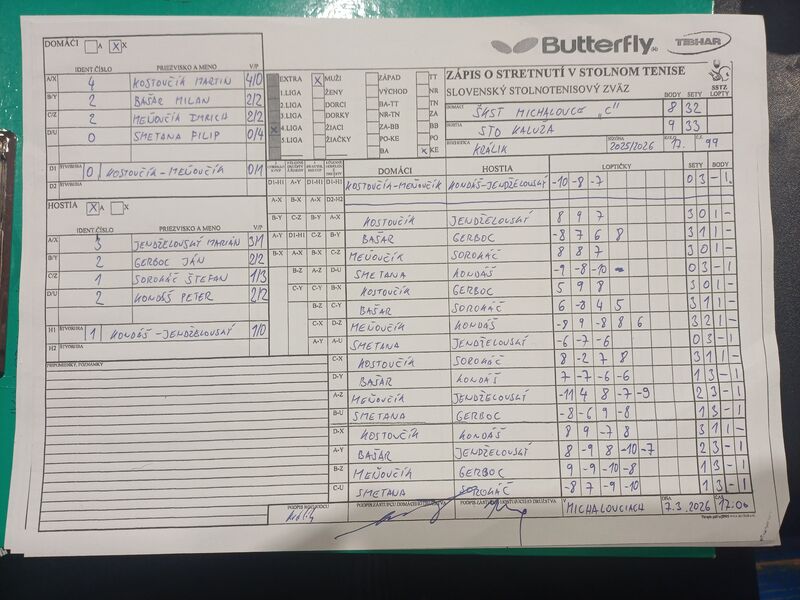 DOMÁCI A X X
IDENT ČÍSLO PRIEZVISKO A MENO V/P
A/X 4 KOSTOVČÍK MARTIN 4/0
B/Y 2 BAŠAR MILAN 2/2
C/Z 2 MEŇOVČÍK IMRICH 2/2
D/U 0 SMETANA FILIP 0/4
D1 ŠTVORHRA 0 KOSTOVČÍK - MEŇOVČÍK 0/1
D2
HOSTIA X A X
IDENT ČÍSLO PRIEZVISKO A MENO V/P
A/X 3 JENDŽELOVSKÝ MARIÁN 3/1
B/Y 2 GERBOC JÁN 2/2
C/Z 1 SOROKÁČ ŠTEFAN 1/3
D/U 2 KONDÁŠ PETER 2/2
H1 ŠTVORHRA 1 KONDÁŠ - JENDŽELOVSKÝ 1/0
H2 ŠTVORHRA
PRIPOMIENKY, POZNÁMKY
Butterfly TIBHAR
EXTRA X MUŽI ZÁPAD TT
1.LIGA ŽENY VÝCHOD NR
2.LIGA DORCI BA-TT TN
3.LIGA DORKY NR-TN ZA
X 4.LIGA ŽIACI ZA-BB BB
5.LIGA ŽIAČKY BB-PO PO
BA X KE
ZÁPIS O STRETNUTÍ V STOLNOM TENISE
SLOVENSKÝ STOLNOTENISOVÝ ZVÄZ
SSTZ
BODY SETY LOPTY
DOMÁCI ŠKST MICHALOVCE "C" 8 32
HOSTIA STO KALUŽA 9 33
ROZHODCA KRÁLIK SEZÓNA 2025/2026 17. 99
DOMÁCI HOSTIA LOPTIČKY SETY BODY
D1-H1 A-Y D1-H1 D1-H1 KOSTOVČÍK-MEŇOVČÍK KONDÁŠ-JENDŽELOVSKÝ -10 -8 -7 0 3 - 1
A-X B-X A-X D2-H2
B-Y C-Z B-Y A-X KOSTOVČÍK JENDŽELOVSKÝ 8 9 7 3 0 1 -
A-Y D1-H1 C-Z B-Y BAŠAR GERBOC -8 7 6 8 3 1 1 -
B-X A-X B-X C-Z MEŇOVČÍK SOROKÁČ 8 8 7 3 0 1 -
B-Z A-Z D-U SMETANA KONDÁŠ -9 -8 -10 0 3 - 1
C-Y C-Y B-X KOSTOVČÍK GERBOC 5 9 8 3 0 1 -
B-Z C-Y BAŠAR SOROKÁČ 6 -8 4 5 3 1 1 -
C-X D-Z MEŇOVČÍK KONDÁŠ -8 9 -8 8 6 3 2 1 -
A-Y A-U SMETANA JENDŽELOVSKÝ -6 -7 -6 0 3 - 1
C-X KOSTOVČÍK SOROKÁČ 8 -2 7 8 3 1 1 -
D-Y BAŠAR KONDÁŠ 7 -7 -6 -6 1 3 - 1
A-Z MEŇOVČÍK JENDŽELOVSKÝ -11 4 8 -7 -9 2 3 - 1
B-U SMETANA GERBOC -8 -6 9 -8 1 3 - 1
D-X KOSTOVČÍK KONDÁŠ 8 9 -7 8 3 1 1 -
A-Y BAŠAR JENDŽELOVSKÝ 8 -9 8 -10 -7 2 3 - 1
B-Z MEŇOVČÍK GERBOC 9 -9 -10 -8 1 3 - 1
C-U SMETANA SOROKÁČ -8 7 -9 -10 1 3 - 1
PODPIS ROZHODCU PODPIS ZÁSTUPCU DOMÁCEHO DRUŽSTVA PODPIS ZÁSTUPCU HOSŤUJÚCEHO DRUŽSTVA V MICHALOVCIACH DŇA 7.3.2026 ČAS 17:00